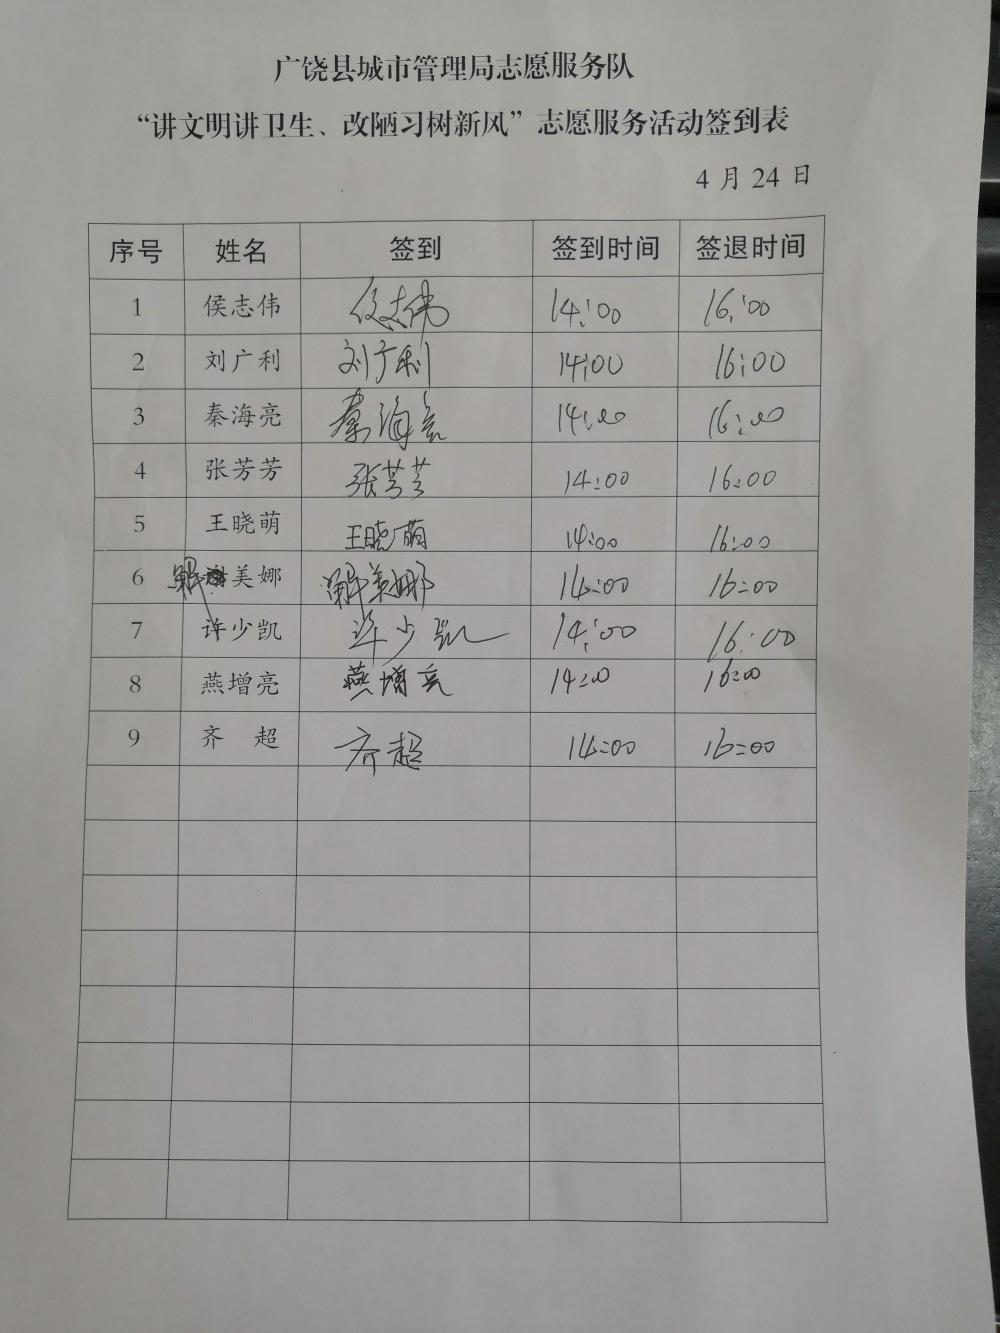 广饶县城市管理局志愿服务队
“讲文明讲卫生、改陋习树新风”志愿服务活动签到表
4 月 24 日
序号 姓名 签到 签到时间 签退时间
1 侯志伟 侯志伟 14:00 16:00
2 刘广利 刘广利 14:00 16:00
3 秦海亮 秦海亮 14:00 16:00
4 张芳芳 张芳芳 14:00 16:00
5 王晓萌 王晓萌 14:00 16:00
6 解美娜 解美娜 14:00 16:00
7 许少凯 许少凯 14:00 16:00
8 燕增亮 燕增亮 14:00 16:00
9 齐 超 齐超 14:00 16:00